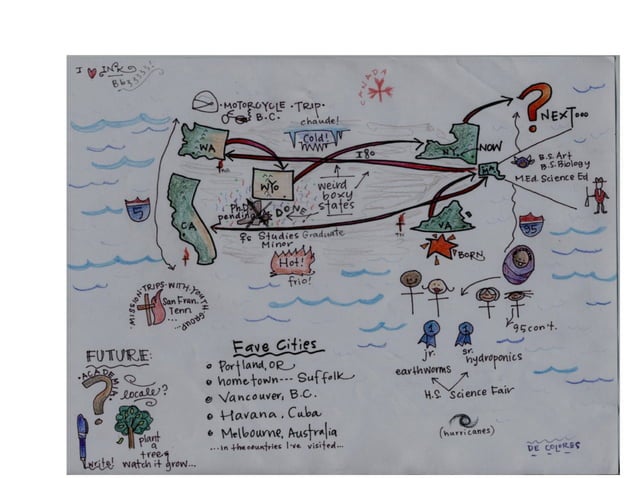 I INK
CANADA
MOTORCYCLE · TRIP.
& B.C.
chaude!
Cold!
NEXT...
WA
NY
NOW
I80
B.S. Art
B.S. Biology
MEd. Science Ed
MA
WYO
weird
boxy
states
PhD
pending
DONE
5
95
CA
♀s Studies Graduate
Minor
VA
BORN
Hot!
frio!
MISSION TRIPS WITH YOUTH GROUP
San Fran.
Tenn.
...
95 con't.
1
1
jr.
sr.
earthworms
hydroponics
H.S. Science Fair
(hurricanes)
Fave Cities
Portland, OR
hometown --- Suffolk
Vancouver, B.C.
Havana, Cuba
Melbourne, Australia
... in the countries I've visited...
FUTURE:
ACADEMIA
?
locale?
plant
a
tree
write!
watch it grow...
DE COLORES